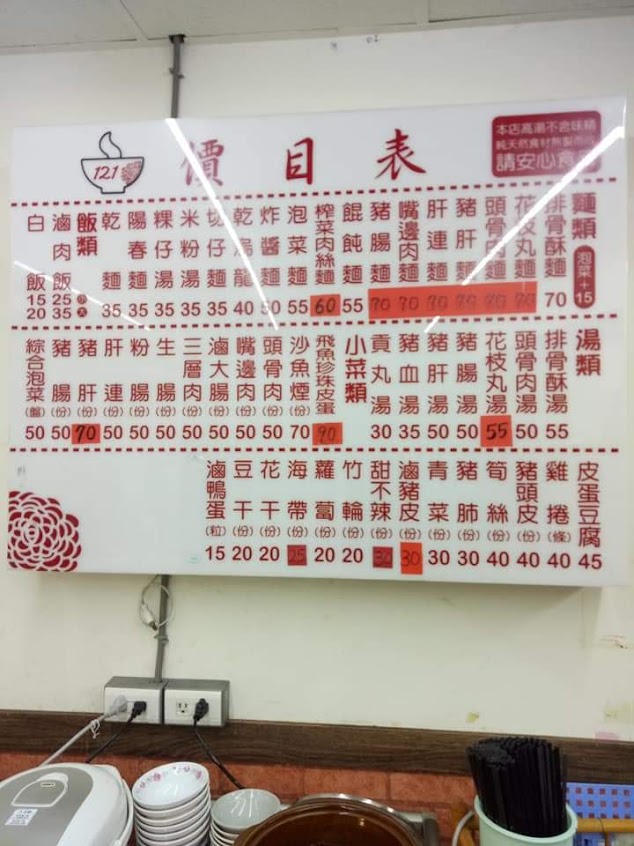 121
價目表
本店高湯不含味精
純天然食材熬製而成
請安心食用
麵類 泡菜+15
排骨酥麵 70
花枝丸麵 70
頭骨肉麵 70
豬肝麵 70
肝連麵 70
嘴邊肉麵 70
豬腸麵 70
餛飩麵 55
榨菜肉絲麵 60
泡菜麵 55
炸醬麵 50
乾烏龍 40
切仔麵 35
米粉湯 35
粿仔湯 35
陽春麵 35
乾麵 35
飯類 小 大
滷肉飯 25 35
白飯 15 20
湯類
排骨酥湯 55
頭骨肉湯 50
花枝丸湯 55
豬腸湯 50
豬肝湯 50
豬血湯 35
貢丸湯 30
小菜類
飛魚珍珠皮蛋(份) 90
沙魚煙(份) 70
頭骨肉(份) 50
嘴邊肉(份) 50
滷大腸(份) 50
三層肉(份) 50
生腸(份) 50
粉腸(份) 50
肝連(份) 50
豬肝(份) 70
豬腸(份) 50
綜合泡菜(盤) 50
皮蛋豆腐 45
雞捲(條) 40
豬頭皮(份) 40
筍絲(份) 40
豬肺(份) 30
青菜(份) 30
滷豬皮(份) 30
甜不辣(份) 30
竹輪(份) 20
蘿蔔(份) 20
海帶(份) 25
花干(份) 20
豆干(份) 20
滷鴨蛋(粒) 15